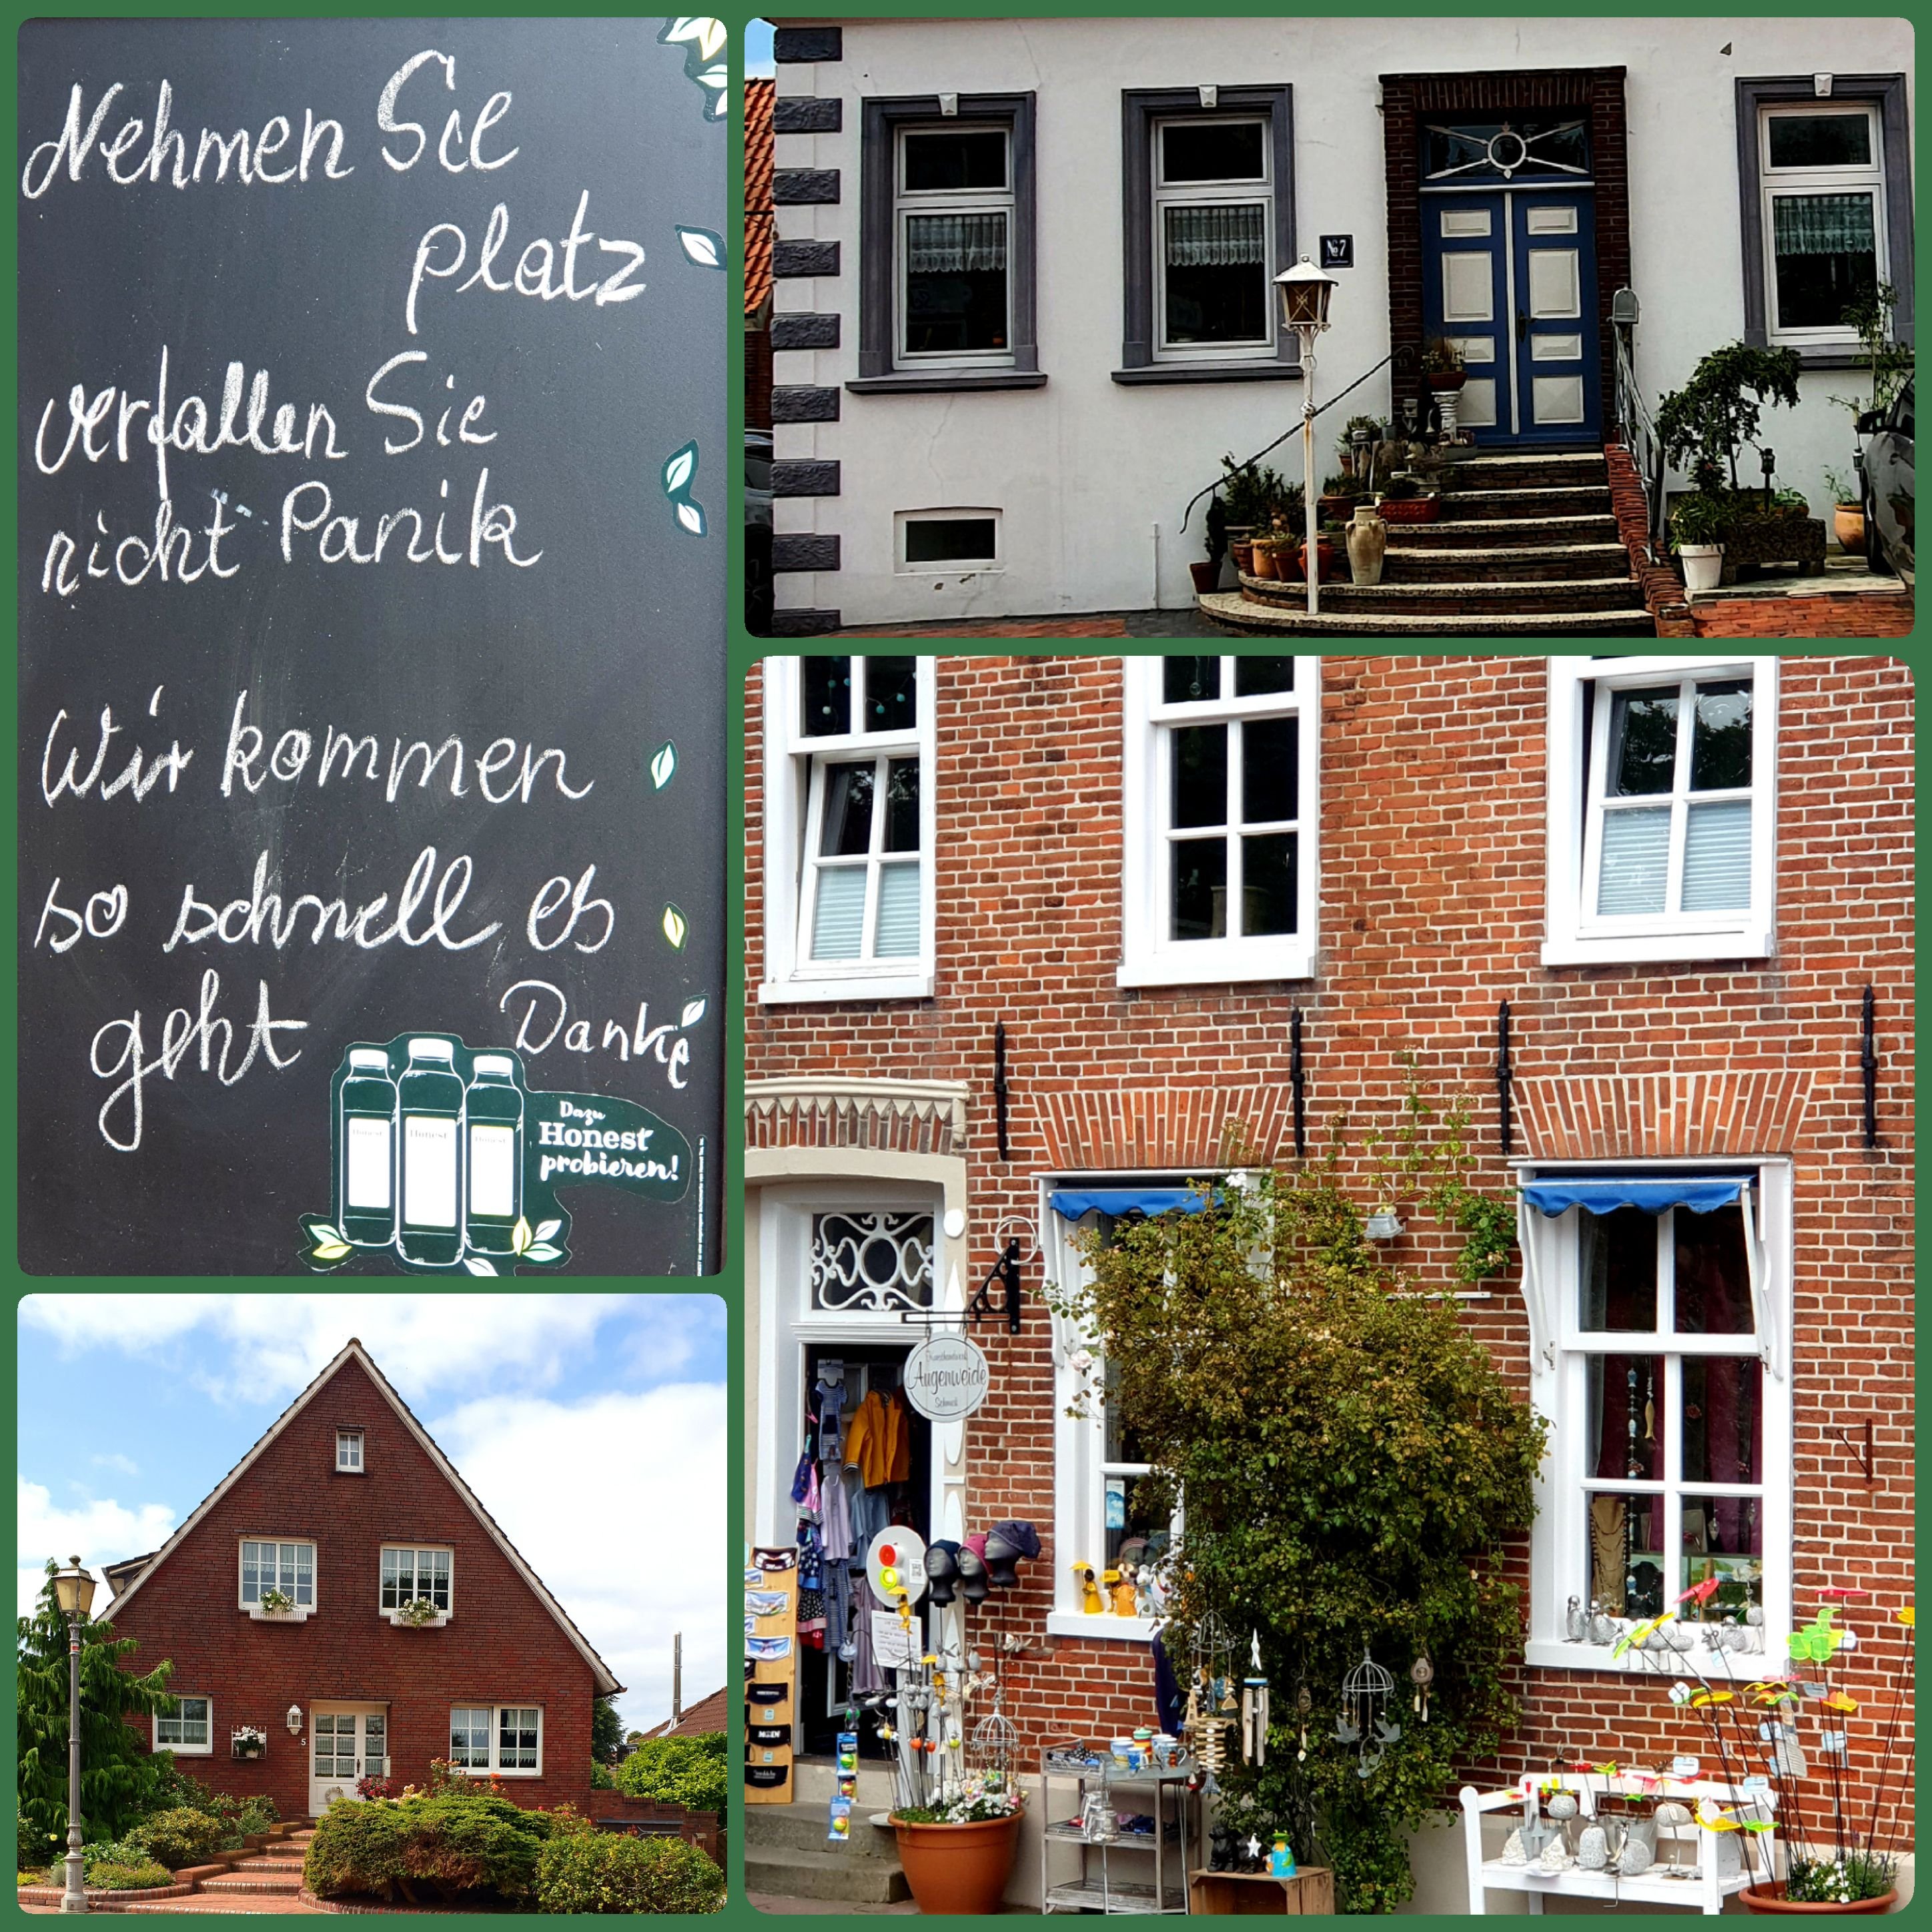 Nehmen Sie
platz
verfallen Sie
nicht Panik
Wir kommen
so schnell es
geht
Danke
Dazu
Honest
probieren!
Honest
Honest
Honest
№7
5
Kunsthandwerk
Augenweide
Schmuck